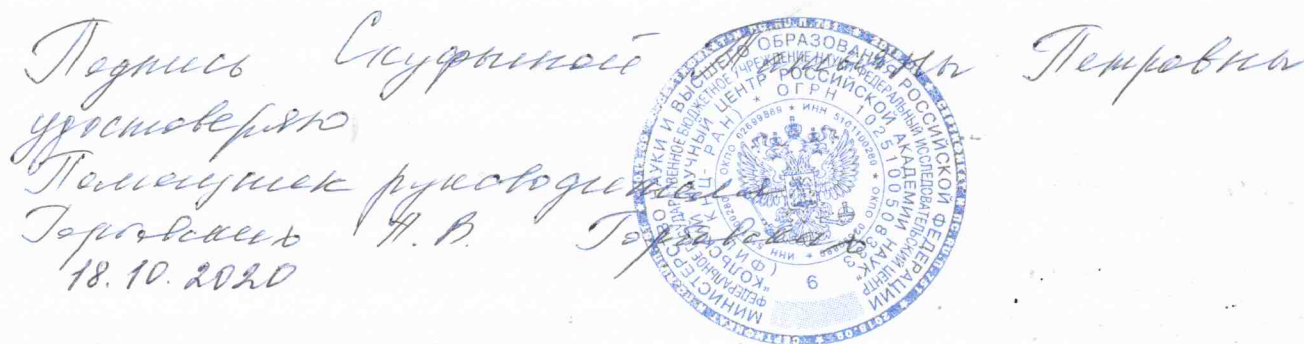 Подпись Скуфьиной Татьяны Петровны
удостоверяю
Помощник руководителя
А.В.
18.10.2020
МИНИСТЕРСТВО НАУКИ И ВЫСШЕГО ОБРАЗОВАНИЯ РОССИЙСКОЙ ФЕДЕРАЦИИ
ФЕДЕРАЛЬНОЕ ГОСУДАРСТВЕННОЕ БЮДЖЕТНОЕ УЧРЕЖДЕНИЕ НАУКИ ФЕДЕРАЛЬНЫЙ ИССЛЕДОВАТЕЛЬСКИЙ ЦЕНТР
"КОЛЬСКИЙ НАУЧНЫЙ ЦЕНТР РОССИЙСКОЙ АКАДЕМИИ НАУК"
(ФИЦ КНЦ РАН) * ОГРН 1025100508333
ОКПО 02699869 * ИНН 5101100280
6